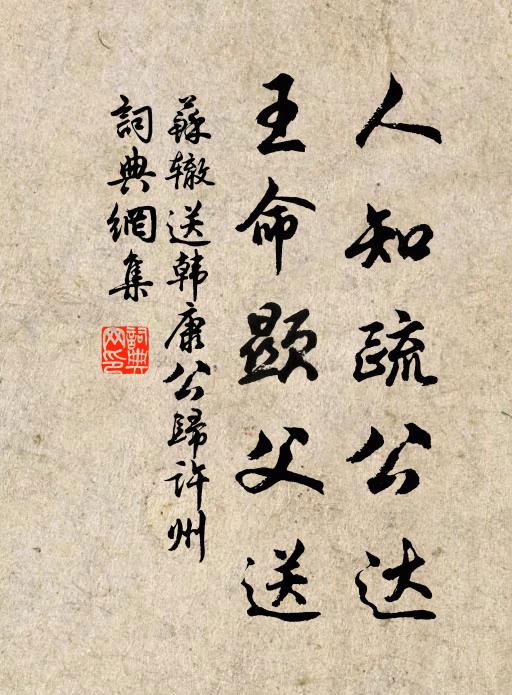 人知疏公达
王命显父送
蘇辙送韩康公歸许州
詞典網集
詞典网印